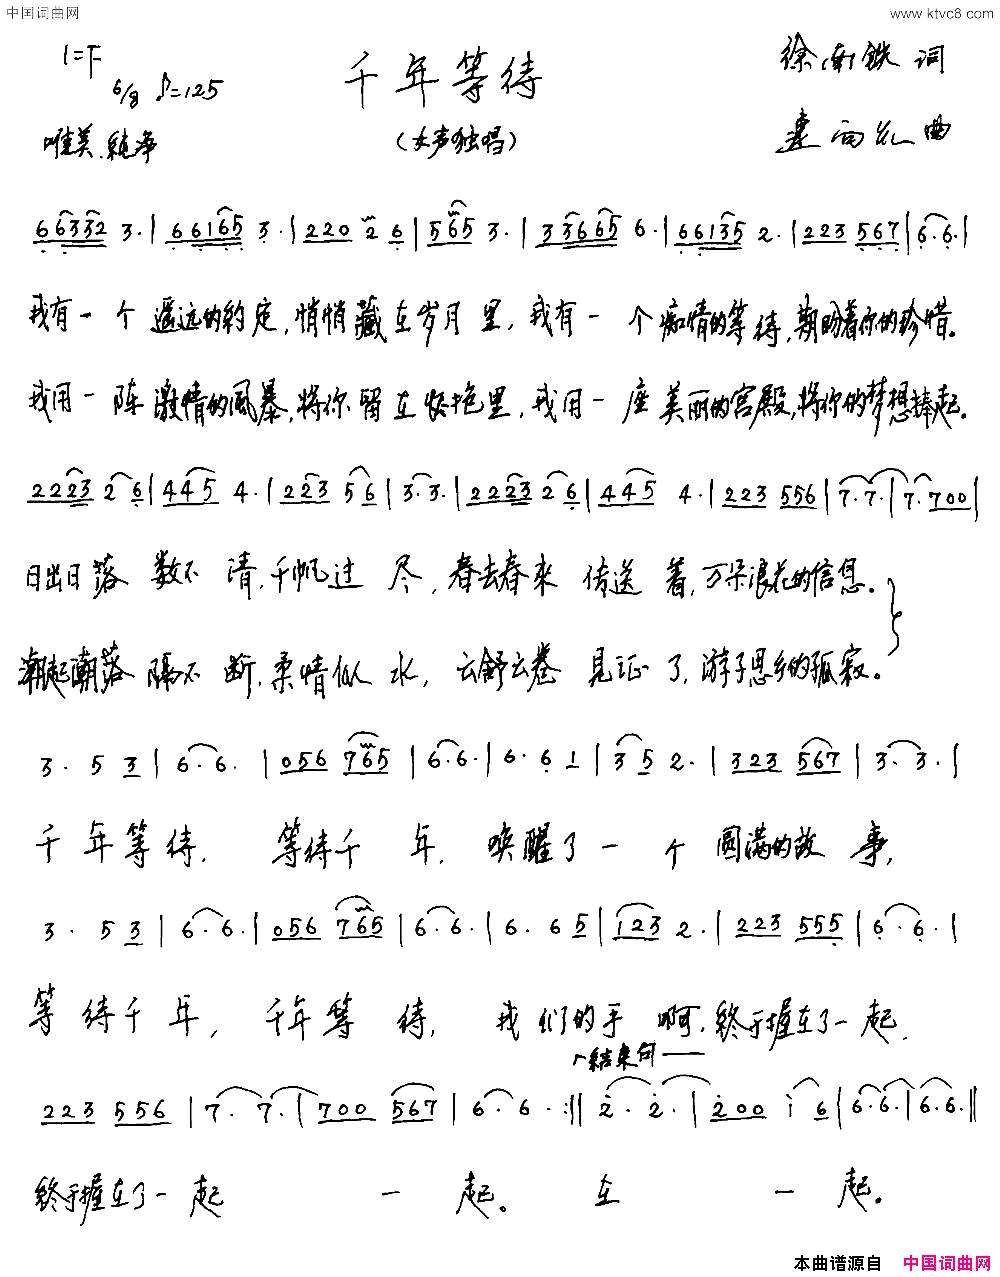 中国词曲网 www.ktvc8.com
1=F
6/8 ♪=125
千年等待
徐南铁 词
唯美.纯净
(女声独唱)
向红 曲
6 6 3 3 2 3 · | 6 6 1 6 5 3 · | 2 2 0 2 6 | 5 6 5 3 · | 3 3 6 6 5 6 · | 6 6 1 3 5 2 · | 2 2 3 5 6 7 | 6 · 6 · |
我有一个遥远的约定,悄悄藏在岁月里,我有一个痴情的等待,期盼着你的珍惜。
我用一阵激情的风暴,将你留在怀抱里,我用一座美丽的宫殿,将你的梦想捧起。
2 2 2 3 2 6 | 4 4 5 4 · | 2 2 3 5 6 | 3 · 3 · | 2 2 2 3 2 6 | 4 4 5 4 · | 2 2 3 5 5 6 | 7 · 7 · | 7 · 7 0 0 |
日出日落数不清,千帆过尽,春去春来传送着,万朵浪花的信息。
潮起潮落隔不断,柔情似水,云舒云卷见证了,游子思乡的孤寂。
3 · 5 3 | 6 · 6 · | 0 5 6 7 6 5 | 6 · 6 · | 6 · 6 1 | 3 5 2 · | 3 2 3 5 6 7 | 3 · 3 · |
千年等待,等待千年,唤醒了一个圆满的故事,
3 · 5 3 | 6 · 6 · | 0 5 6 7 6 5 | 6 · 6 · | 6 · 6 5 | 1 2 3 2 · | 2 2 3 5 5 5 | 6 · 6 · |
等待千年,千年等待,我们的手啊,终于握在了一起,
结束句
2 2 3 5 5 6 | 7 · 7 · | 7 0 0 5 6 7 | 6 · 6 · :‖ 2 · 2 · | 2 0 0 i 6 | 6 · 6 · | 6 · 6 · ‖
终于握在了一起 一起。在一起。
本曲谱源自 中国词曲网